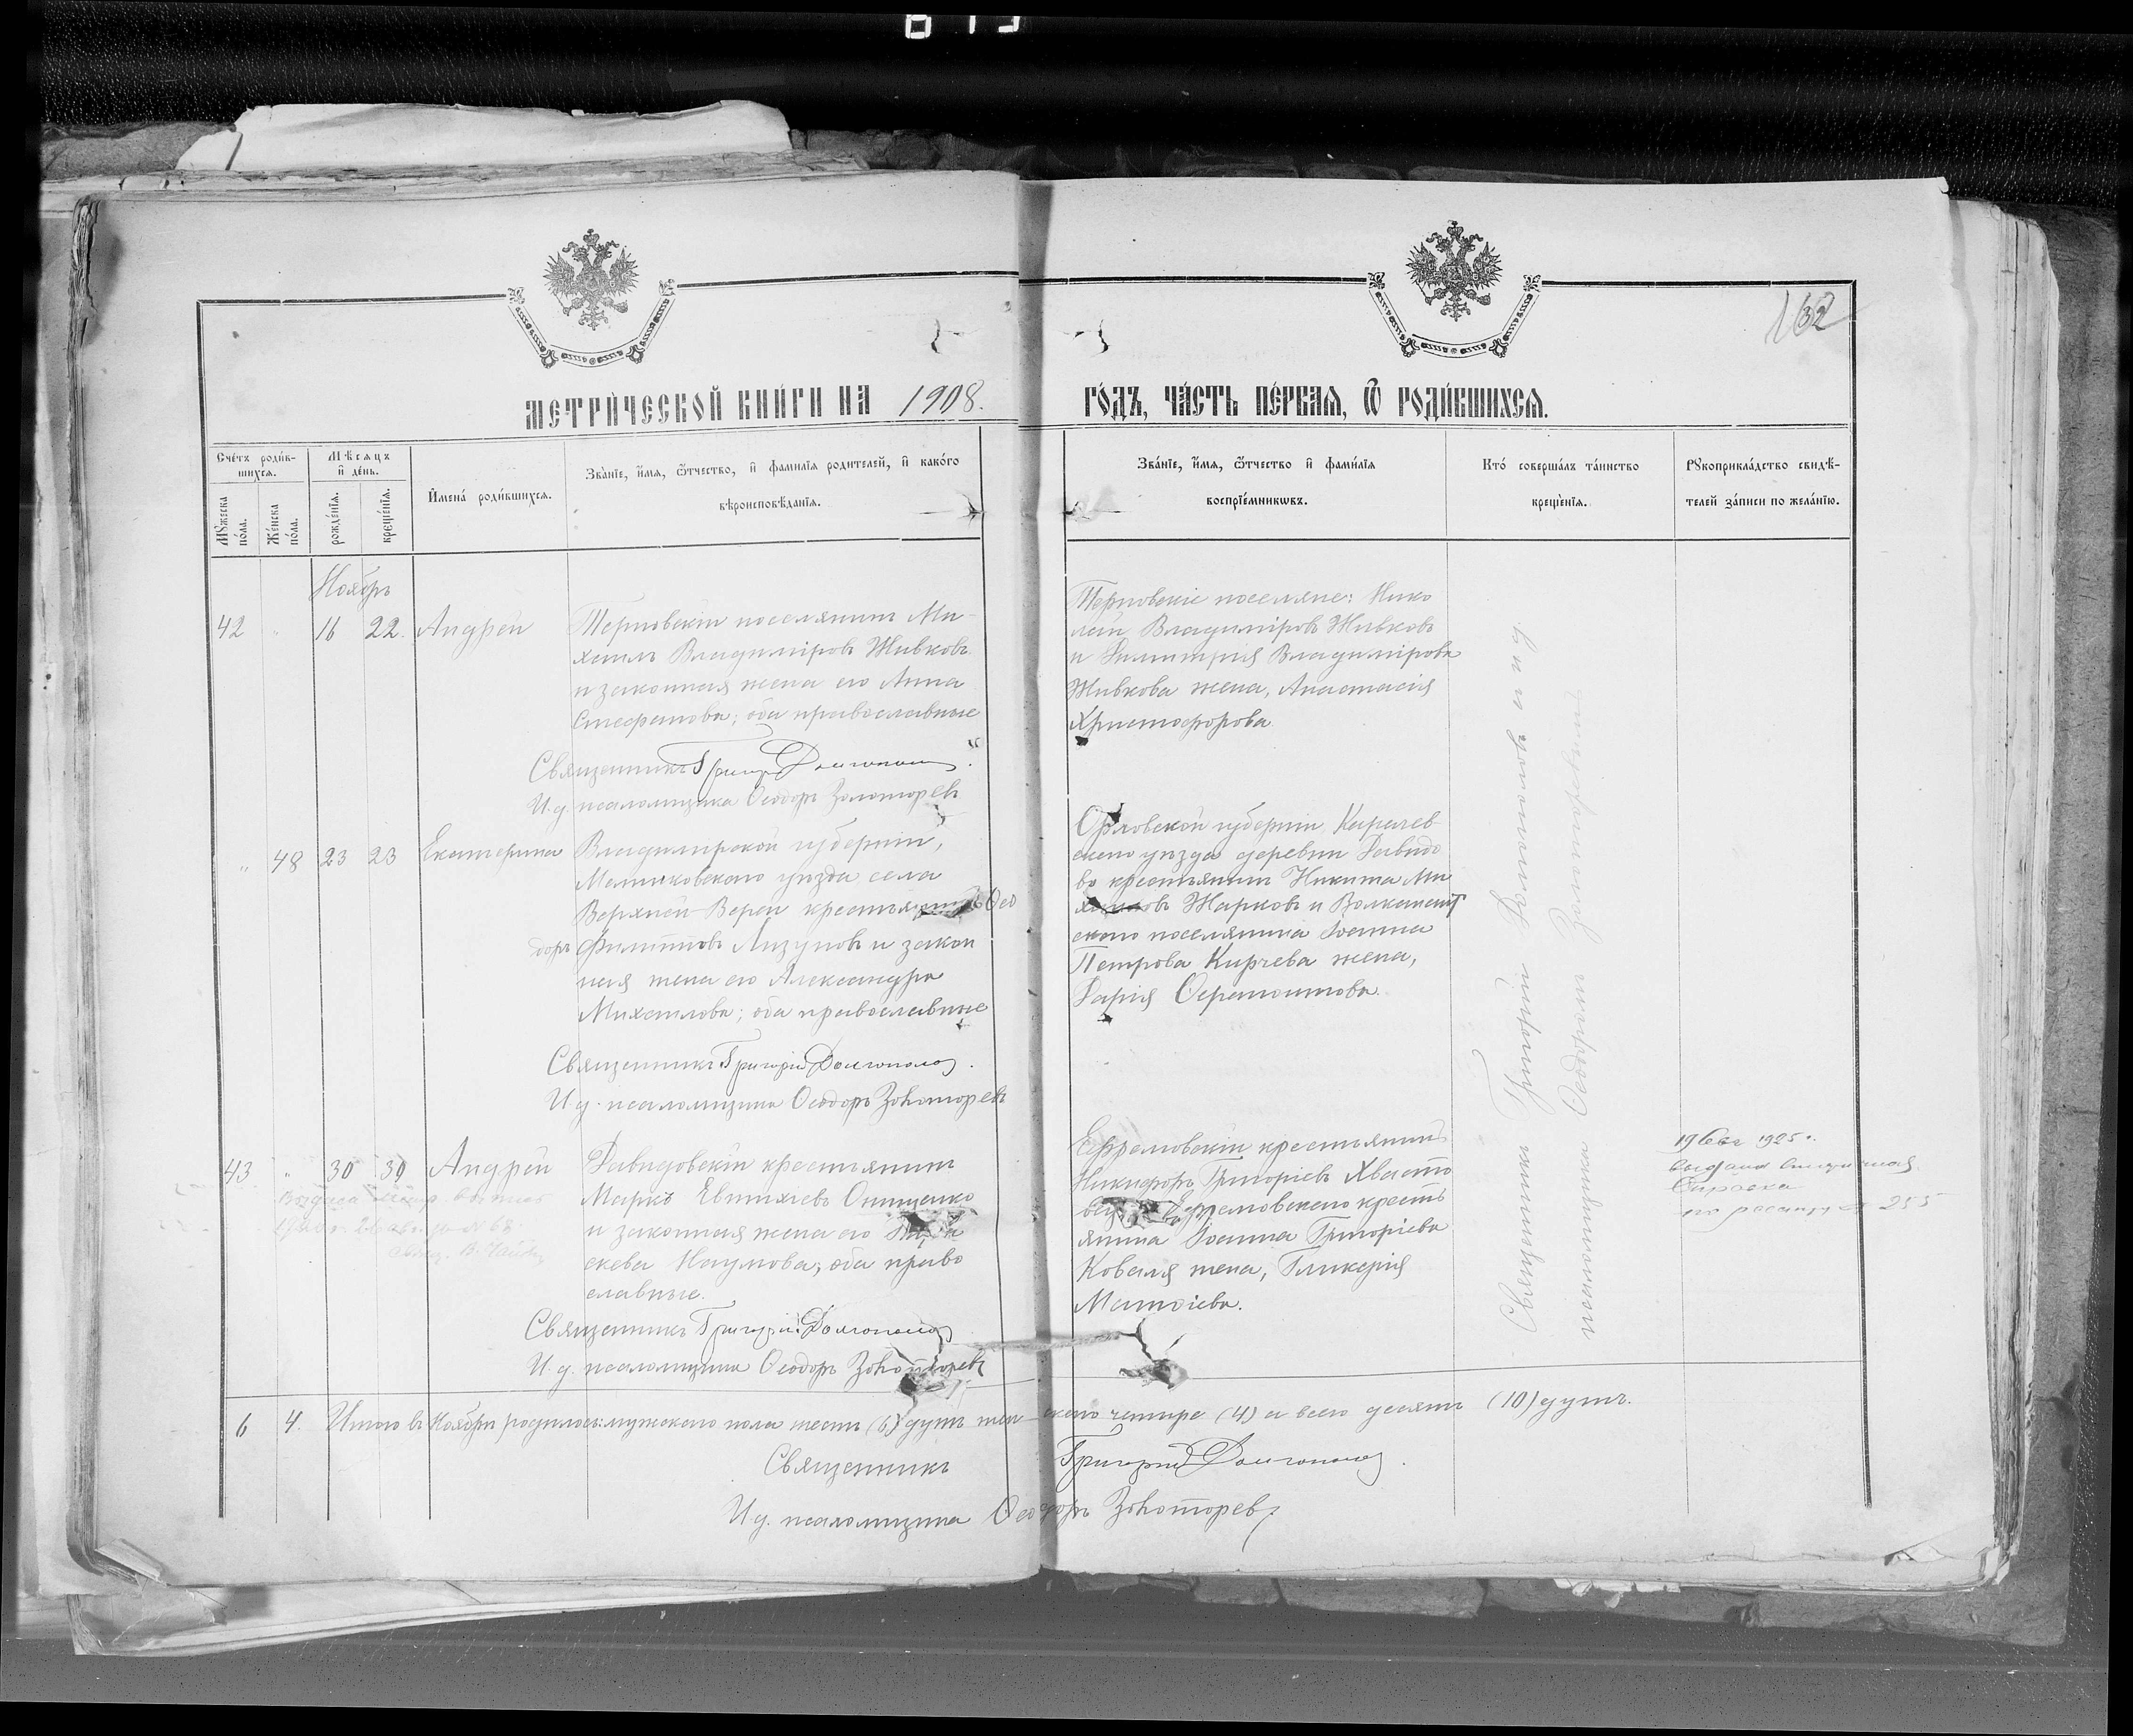 132
МЕТРИ́ЧЕСКОЙ КНИ́ГИ НА 1908. ГО́ДЪ, ЧА́СТЬ ПЕ́РВАЯ, Ѿ РОДИ́ВШИХСЯ.
Сче́тъ роди́в-
шихся.
Мѣсяцъ
и҆ де́нь.
Мꙋ́жеска
по́ла.
Же́нска
по́ла.
рожде́нїя.
креще́нїя.
И҆мена́ роди́вшихся.
Зва́нїе, и҆́мя, ѻ҆́тчество, и҆ фами́лїя роди́телей, и҆ како́го
вѣроисповѣ́данїя.
Зва́нїе, и҆́мя, ѻ҆́тчество и҆ фами́лїя
воспрїе́мникѡвъ.
Кто́ соверша́лъ та́инство
креще́нїя.
Рꙋкоприкла́дство свидѣ́-
телей за́писи по жела́нїю.
Ноябрь
42 " 16 22. Андрей
Терновскій поселянинъ Ми-
хаилъ Владиміровъ Живковъ
и законная жена его Анна
Стефанова; оба православные
Священникъ Григорій Долгополовъ.
И. д. псаломщика Ѳеодоръ Золоторевъ
Терновскіе поселяне: Нико
лай Владиміровъ Живковъ
и Димитрія Владимірова
Живкова жена, Анастасія
Христофорова
" 48 23 23 Екатерина
Владимирской губерніи,
Меленковскаго уѣзда села
Верхней-Вереи крестьянинъ Ѳео
доръ Филипповъ Лизуновъ и закон
ная жена его Александра
Михаилова; оба православные
Священникъ Григорій Долгополовъ.
И. д. псаломщика Ѳеодоръ Золоторевъ
Орловской губерніи, Карачев
скаго уѣзда деревни Давидо
во крестьянинъ Никита Ми
хаиловъ Жарковъ и
скаго поселянина Іоанна
Петрова Кирчева жена,
Дарія Ѳерапонтова.
43 " 30 30 Андрей
Давидовскій крестьянинъ
Маркъ Евтихіевъ Онищенко
и законная жена его Па
скева Наумова; оба право
славные.
Священникъ Григорій Долгополовъ
И. д. псаломщика Ѳеодоръ Золоторевъ
Ефремовскій крестьянинъ
Никифоръ Григоріевъ
Ефремовскаго кресть
янина Іоанна Григоріева
Коваля жена, Гликерія
Матѳіева.
Священникъ Григорій Долгополовъ и и. д.
псаломщика Ѳеодоръ Золоторевъ
1925 г.
выдана
Справка
255
6 4. Итого въ Ноябрѣ родилось: мужскаго пола шесть (6) душъ жен скаго четыре (4) а всего десять (10) душъ.
Священникъ Григорій Долгополовъ.
И. д. псаломщика Ѳеодоръ Золоторевъ